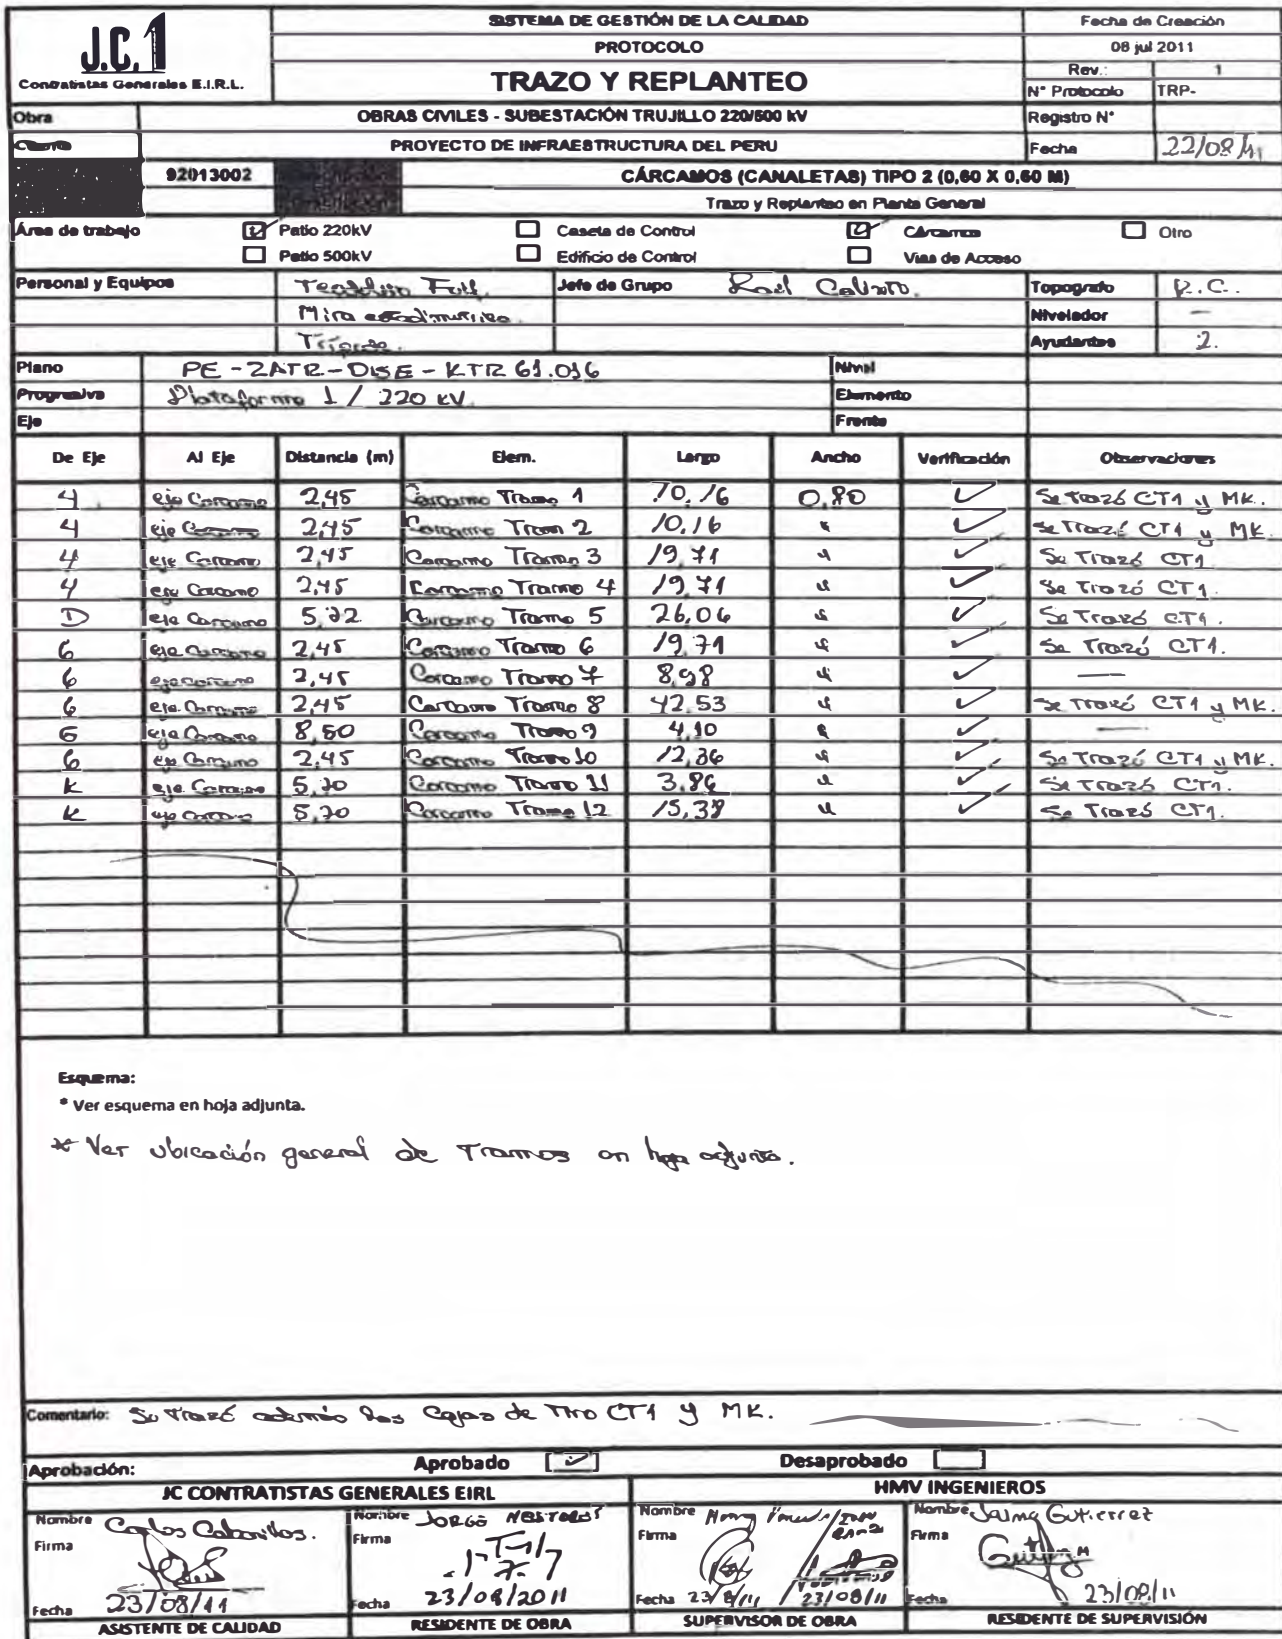 J.C.1
Contratistas Generales E.I.R.L.
SISTEMA DE GESTIÓN DE LA CALIDAD
PROTOCOLO
TRAZO Y REPLANTEO
Fecha de Creación
08 jul 2011
Rev.: 1
N° Protocolo TRP-
Obra OBRAS CIVILES - SUBESTACIÓN TRUJILLO 220/500 kV Registro N°
PROYECTO DE INFRAESTRUCTURA DEL PERU Fecha 22/08/11
92013002 CÁRCAMOS (CANALETAS) TIPO 2 (0,60 X 0,60 M)
Trazo y Replanteo en Planta General
Área de trabajo Patio 220kV Caseta de Control Cárcamos Otro
Patio 500kV Edificio de Control Vias de Acceso
Personal y Equipos Jefe de Grupo Topografo R.C.
Mira Nivelador —
Ayudantes 2.
Plano PE - ZATR - DISE - KTR 61.016 Nivel
Progresiva Plataforma 1 / 220 kV. Elemento
Eje Frente
De Eje Al Eje Distancia (m) Elem. Largo Ancho Verificación Observaciones
4 eje Carcamo 2,45 Carcamo Tramo 1 10,16 0,80 ✓ Se trazó CT1 y MK.
4 eje Carcamo 2,45 Carcamo Tramo 2 10,16 " ✓ Se Trazó CT1 y MK.
4 eje Carcamo 2,45 Carcamo Tramo 3 19,71 " ✓ Se Trazó CT1
4 eje Carcamo 2,45 Carcamo Tramo 4 19,71 " ✓ Se Trazó CT1.
D eje Carcamo Carcamo Tramo 5 26,06 " ✓ Se Trazó CT1.
6 eje Carcamo 2,45 Carcamo Tramo 6 19,71 " ✓ Se Trazó CT1.
6 eje Carcamo 2,45 Carcamo Tramo 7 8,98 " ✓ —
6 eje Carcamo 2,45 Carcamo Tramo 8 42,53 " ✓ Se Trazó CT1 y MK.
eje Carcamo 8,50 Carcamo Tramo 9 4,10 " ✓ —
6 eje Carcamo 2,45 Carcamo Tramo 10 12,36 " ✓ Se Trazó CT1 y MK.
K eje Carcamo Carcamo Tramo 11 3,86 " ✓ Se Trazó CT1.
K eje Carcamo Carcamo Tramo 12 15,38 " ✓ Se Trazó CT1.
Esquema:
* Ver esquema en hoja adjunta.
* Ver ubicación general de Tramos en hoja adjunta.
Comentario: Se trazó además las Cajas de Tiro CT1 y MK.
Aprobación: Aprobado [✓] Desaprobado [ ]
JC CONTRATISTAS GENERALES EIRL HMV INGENIEROS
Nombre Carlos Cabanillas. Nombre JORGE Nombre Nombre Jaime Gutierrez
Firma Firma Firma Firma
Fecha 23/08/11 Fecha 23/08/2011 Fecha 23/8/11 23/08/11 Fecha 23/08/11
ASISTENTE DE CALIDAD RESIDENTE DE OBRA SUPERVISOR DE OBRA RESIDENTE DE SUPERVISIÓN